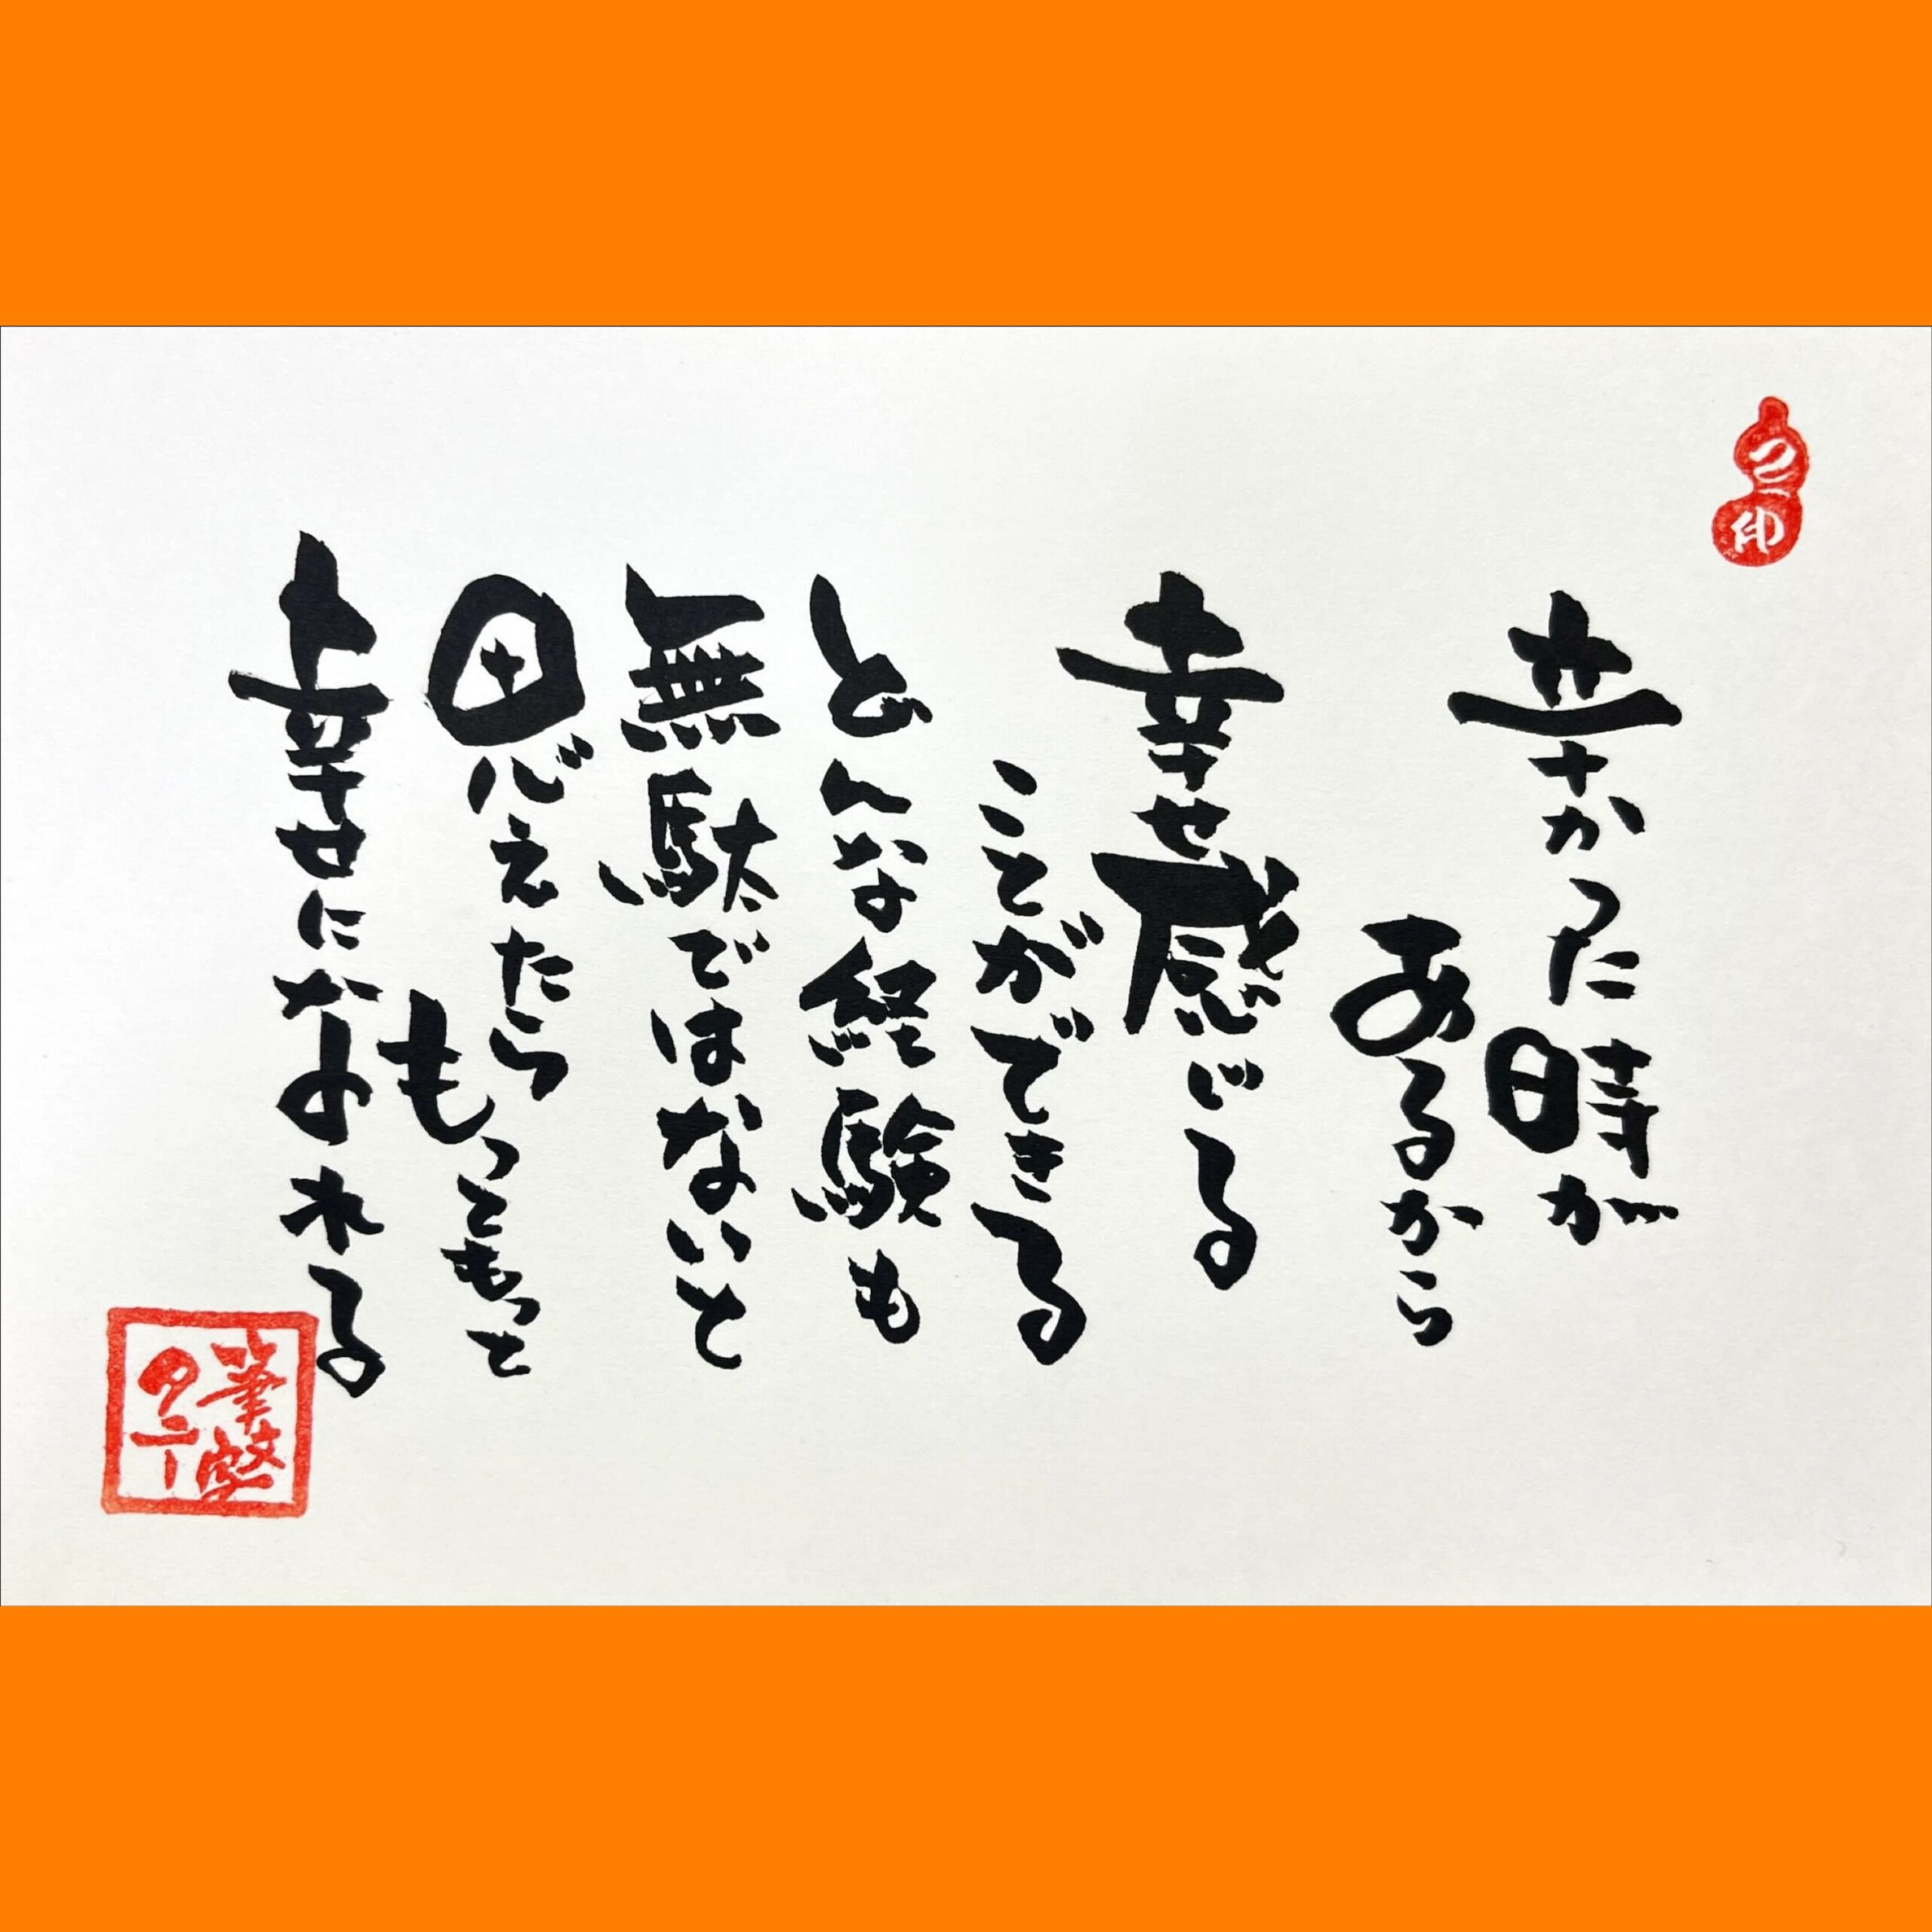 辛かった時が
あるから
幸せ感じる
ことができる
どんな経験も
無駄ではないと
思えたら
もっともっと
幸せになれる
筆文字
タニー